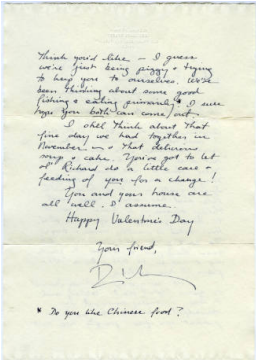 think you'd like — I guess
we're just being piggy & trying
to keep you to ourselves. We've
been thinking about some good
fishing & eating primarily * I sure
hope you both can come out.
I still think about that
fine day we had together in
November — & that delicious
soup & cake. You've got to let
ol' Richard do a little care &
feeding of you for a change!
You and your house are
all well, I assume.
Happy Valentine's Day
Your friend,
* Do you like Chinese food?